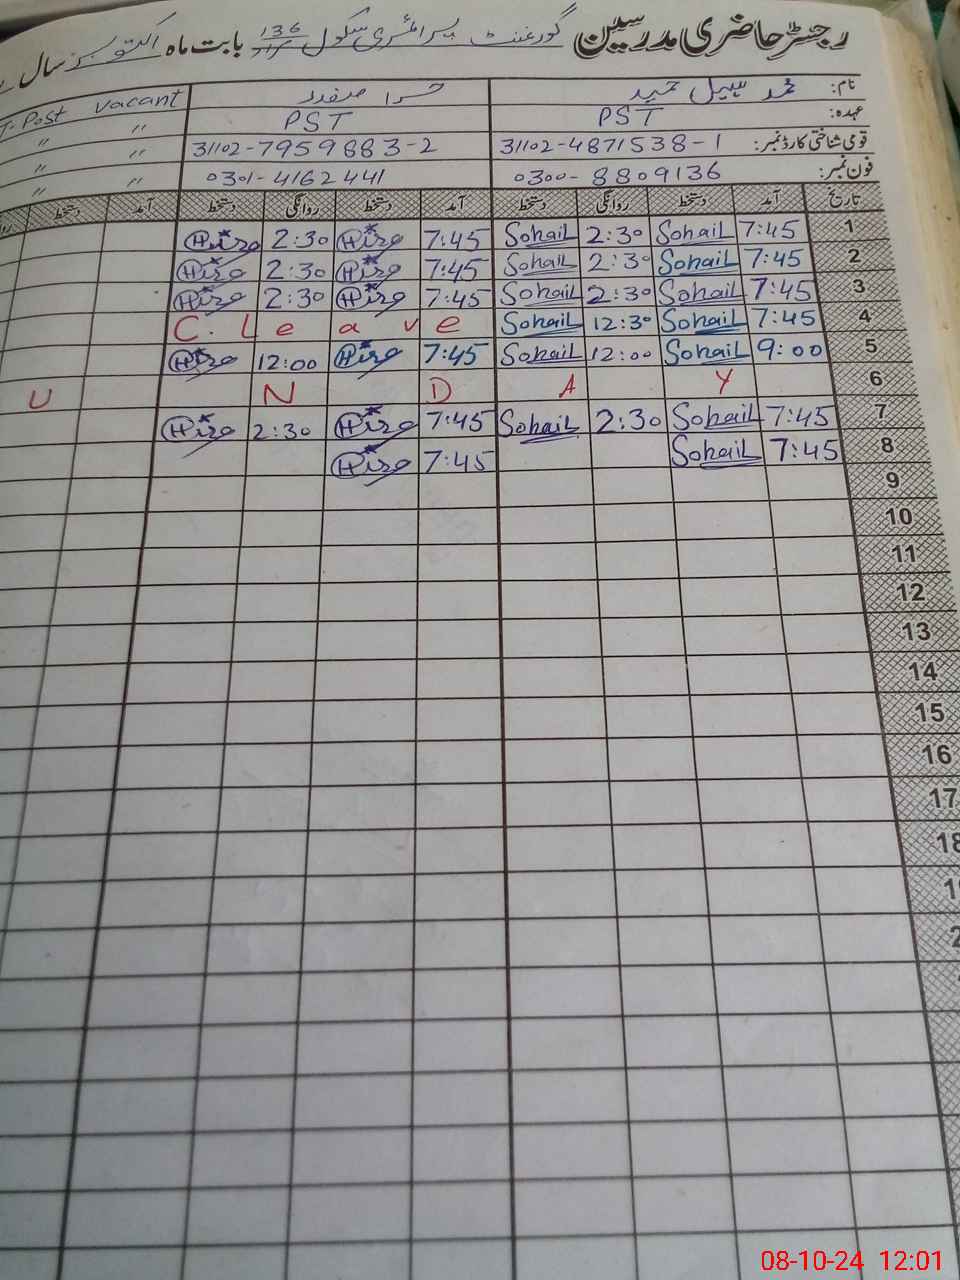 رجسٹر حاضری مدرسین گورنمنٹ پرائمری سکول 136 بابت ماہ اکتوبر سال
نام: محمد سہیل حمید حرا صفدر Post vacant
عہدہ: PST PST 〃 〃
قومی شناختی کارڈ نمبر: 31102-4871538-1 31102-7959883-2 〃 〃
فون نمبر: 0300-8809136 0301-4162441 〃 〃
تاریخ آمد دستخط روانگی دستخط آمد دستخط روانگی دستخط آمد دستخط
1 7:45 Sohail 2:30 Sohail 7:45 Hira 2:30 Hira
2 7:45 Sohail 2:30 Sohail 7:45 Hira 2:30 Hira
3 7:45 Sohail 2:30 Sohail 7:45 Hira 2:30 Hira
4 7:45 Sohail 12:30 Sohail C. Leave
5 9:00 Sohail 12:00 Sohail 7:45 Hira 12:00 Hira
6 U N D A Y
7 7:45 Sohail 2:30 Sohail 7:45 Hira 2:30 Hira
8 7:45 Sohail 7:45 Hira
9
10
11
12
13
14
15
16
17
18
08-10-24 12:01